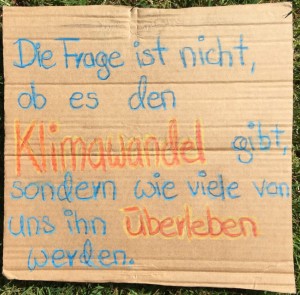 Die Frage ist nicht,
ob es den
Klimawandel gibt,
sondern wie viele von
uns ihn überleben
werden.